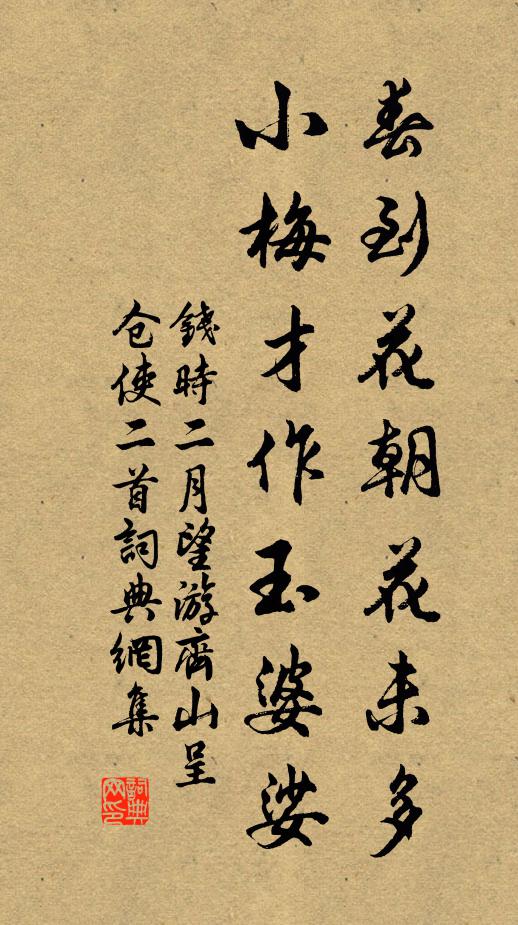 春到花朝花未多
小梅才作玉婆娑
錢時二月望游齊山呈
仓使二首詞典網集
詞典网印